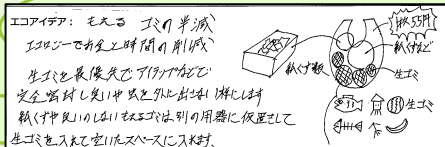 エコアイデア： もえる ゴミの半減
エコロジーでお金と時間の削減
生ゴミを最優先でアイラップなどで
完全密封し臭いや虫を外に出さない様にします
紙くずや臭いのしないもえるゴミは別の用器に仮置きして
生ゴミを入れて空いたスペースに入れます。
1枚55円
紙くずなど
紙くず類
生ゴミ
生ゴミ